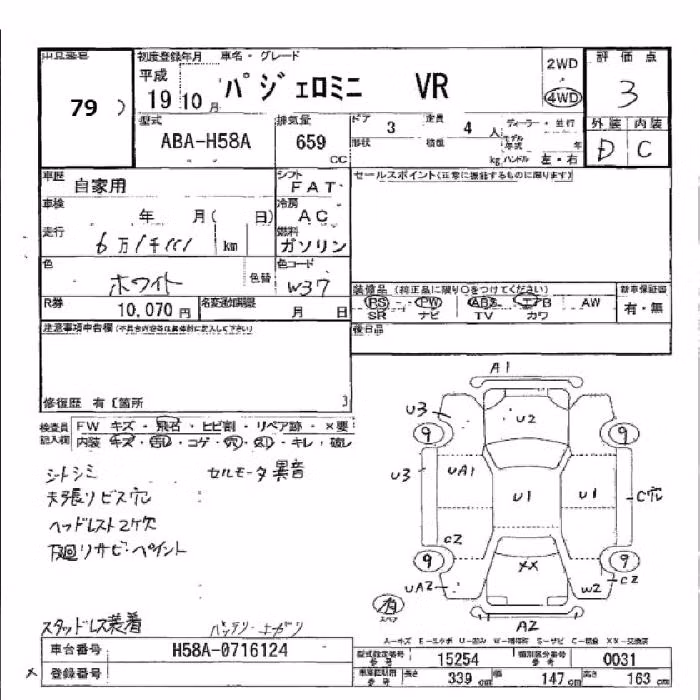 出品番号
79
初度登録年月 車名・グレード
平成
19 10月
パジェロミニ VR
2WD
4WD
評価点
3
外装 内装
D C
型式
ABA-H58A
排気量
659
CC
ドア 3 定員 4 人
形状 積載 kg
ディーラー・並行
モデル年式 年
ハンドル 左・右
車歴
自家用
シフト
FAT
車検
年 月( 日)
冷房
AC
走行
6万1千111 km
燃料
ガソリン
色
ホワイト 色替
色コード
W37
R券
10,070円
名変通知期限
月 日
セールスポイント(正常に機能するものに限ります)
装備品 (純正品に限り○をつけてください)
PS PW ABS エアB AW
SR ナビ TV カワ
新車保証書
有・無
後日品
注意事項申告欄(不具合内容を具体的に記入して下さい)
修復歴 有 〔箇所 〕
検査員記入欄
FW キズ・飛石・ヒビ割・リペア跡・×要
内装 キズ・汚レ・コゲ・穴・凹・キレ・破レ
シートシミ
セルモータ異音
天張リビス穴
ヘッドレスト2ケ欠
下廻リサビ・ペイント
スタッドレス装着
バッテリー上ガリ
A1
U3
U2
9
9
U3
UA1
U1
U1
C穴
C2
9
9
XX
UA2
W2
C2
スペア
A2
A-キズ E-エクボ U-凹み W-補修跡 S-サビ C-腐食 XX-交換済
車台番号
H58A-0716124
登録番号
型式指定番号
15254
類別区分番号
0031
長さ 339 cm
幅 147 cm
高さ 163 cm